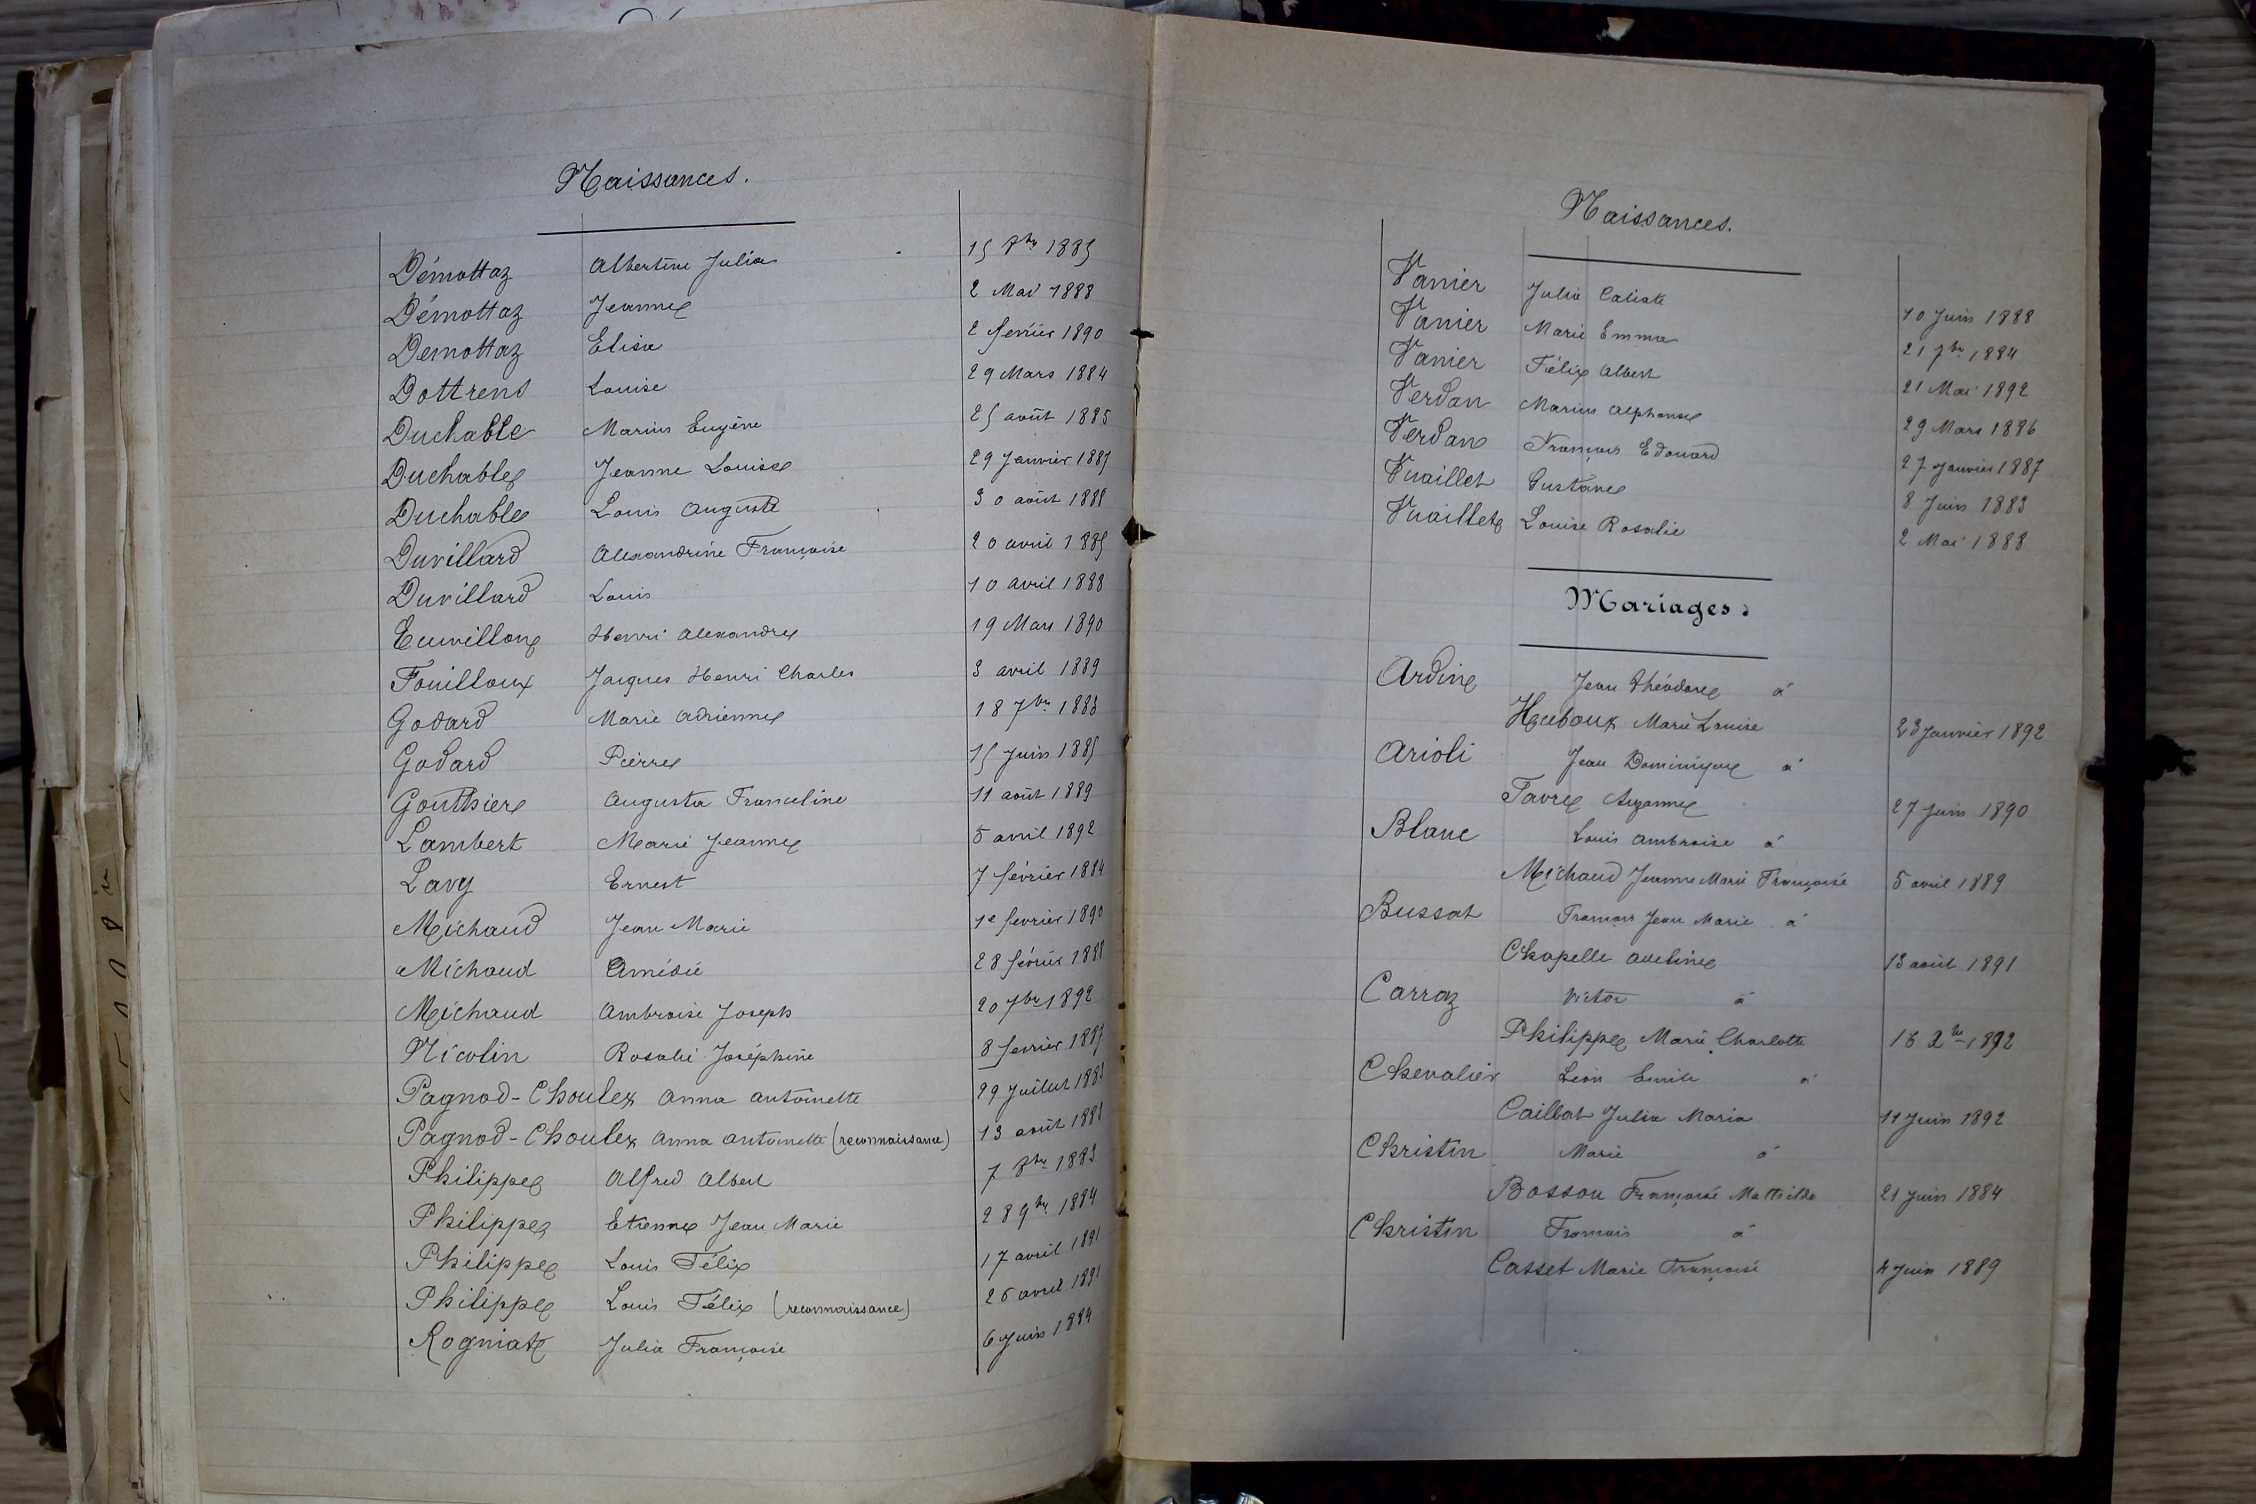 Naissances.
Démottaz Albertine Julia 15 8bre 1885
Démottaz Jeanne 2 Mai 1888
Demottaz Elisa 2 février 1890
Dottrens Louise 29 Mars 1884
Duchable Marius Eugène 25 août 1885
Duchable Jeanne Louise 29 Janvier 1887
Duchable Louis Auguste 30 août 1888
Duvillard Alexandrine Françoise 20 avril 1885
Duvillard Louis 10 avril 1888
Euvillon Henri Alexandre 19 Mars 1890
Fouilloux Jacques Henri Charles 3 avril 1889
Godard Marie Adrienne 18 7bre 1883
Godard Pierre 15 Juin 1885
Gouthier Augusta Franceline 11 août 1889
Lambert Marie Jeanne 5 avril 1892
Lavy Ernest 7 février 1884
Michaud Jean Marie 1e fevrier 1890
Michaud Amédée 28 février 1888
Michaud Ambroise Joseph 20 7bre 1892
Nicolin Rosalie Joséphine 8 fevrier 1887
Pagnod-Choulex Anna Antoinette 29 Juillet 1883
Pagnod-Choulex Anna Antoinette (reconnaissance) 13 août 1883
Philippe Alfred Albert 7 8bre 1883
Philippe Etienne Jean Marie 28 9bre 1884
Philippe Louis Félix 17 avril 1891
Philippe Louis Félix (reconnaissance) 26 avril 1891
Rogniat Julia Françoise 6 Juin 1884
Naissances.
Vanier Julia Caliste 10 Juin 1888
Vanier Marie Emma 21 7bre 1884
Vanier Félix Albert 21 Mai 1892
Verdan Marius Alphonse 29 Mars 1886
Verdan François Edouard 27 Janvier 1887
Vuaillet Gustave 8 Juin 1883
Vuaillet Louise Rosalie 2 Mai 1888
Mariages.
Ardin Jean Théodore à
Huboux Marie Louise 23 Janvier 1892
Arioli Jean Dominique à
Favre Suzanne 27 Juin 1890
Blanc Louis Ambroise à
Michaud Jeanne Marie Françoise 5 avril 1889
Bussat François Jean Marie à
Chapelle Adeline 13 août 1891
Carraz Victor à
Philippe Marie Charlotte 1892
Chevalier Léon Emile à
Caillat Julia Maria 11 Juin 1892
Christin Marie à
Bosson Françoise Mathilde 21 Juin 1884
Christin François à
Casset Marie Françoise 4 Juin 1889